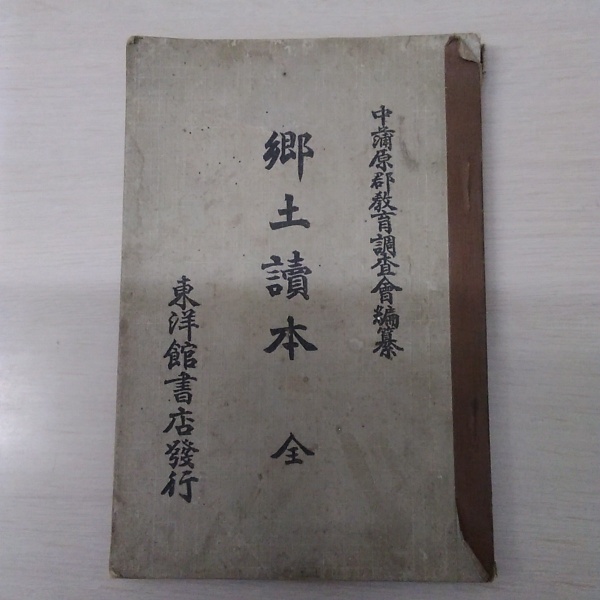 中蒲原郡教育調査會編纂
郷土讀本 全
東洋館書店發行